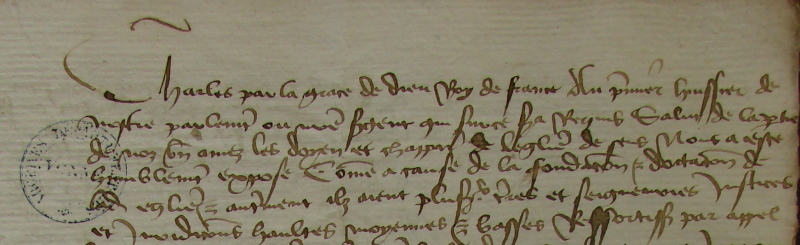 Charles par la grace de dieu Roy de france Au p̄mier huissier de
nostre parlemt̄ ou nr̄e sergent qui sur ce sera Requis Salut de la partie
de noz bn̄ amez les doyen et chappitre de leglise de sens Nous a este
humblemt̄ expose Com̄e a cause de la fondacōn & dotacōn de
lad egl̄ie & autremt̄ ilz aient plusrs̄ tr̄es et seigneuries Justices
et Jurisdicōns haultes moyennes & basses Ressortiss par appel